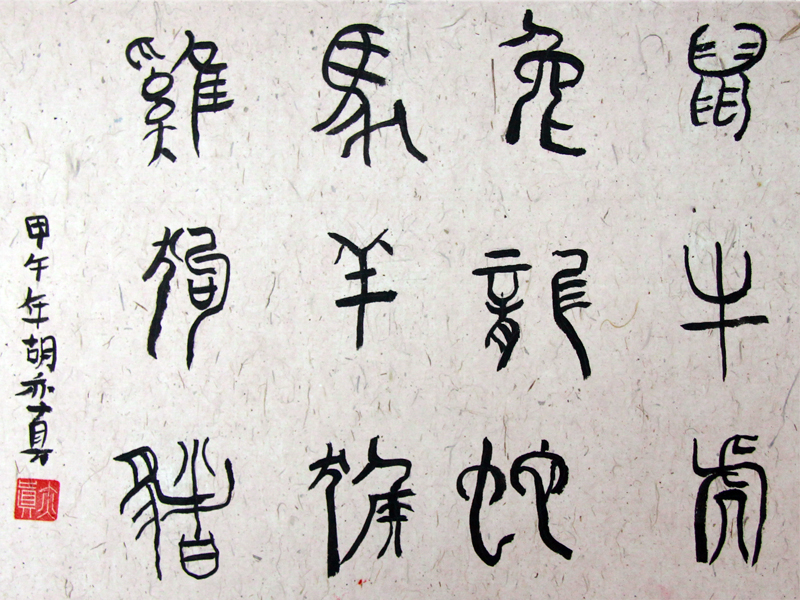 鼠牛虎
兔龍蛇
馬羊猴
雞狗豬
甲午年胡亦真
亦真